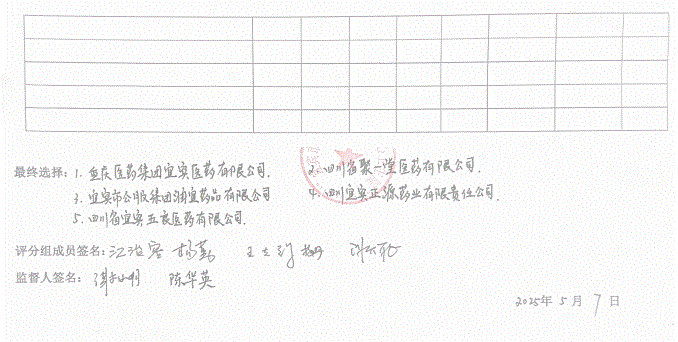 最终选择：1. 重庆医药集团宜宾医药有限公司. 2. 四川省聚一堂医药有限公司.
3. 宜宾市公服集团润宜药品有限公司 4. 四川宜宾正源药业有限责任公司.
5. 四川省宜宾五良医药有限公司.
评分组成员签名：杨勤
监督人签名： 陈华英
2025年 5月 7日